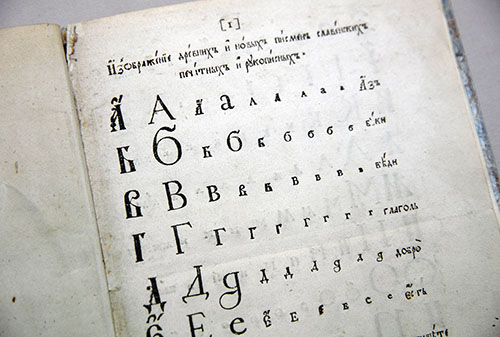 [1]
Изображенїе древнихъ и новыхъ писменъ славенскихъ
печатныхъ и рукописныхъ.
А А а а а а а а а Азъ
Б Б б б б б б б б Буки
В В В в в в в в в Вѣди
Г Г г г г г г г г глаголь
Д Д д д д д д д д добро
Е Е е е е е е е е есть